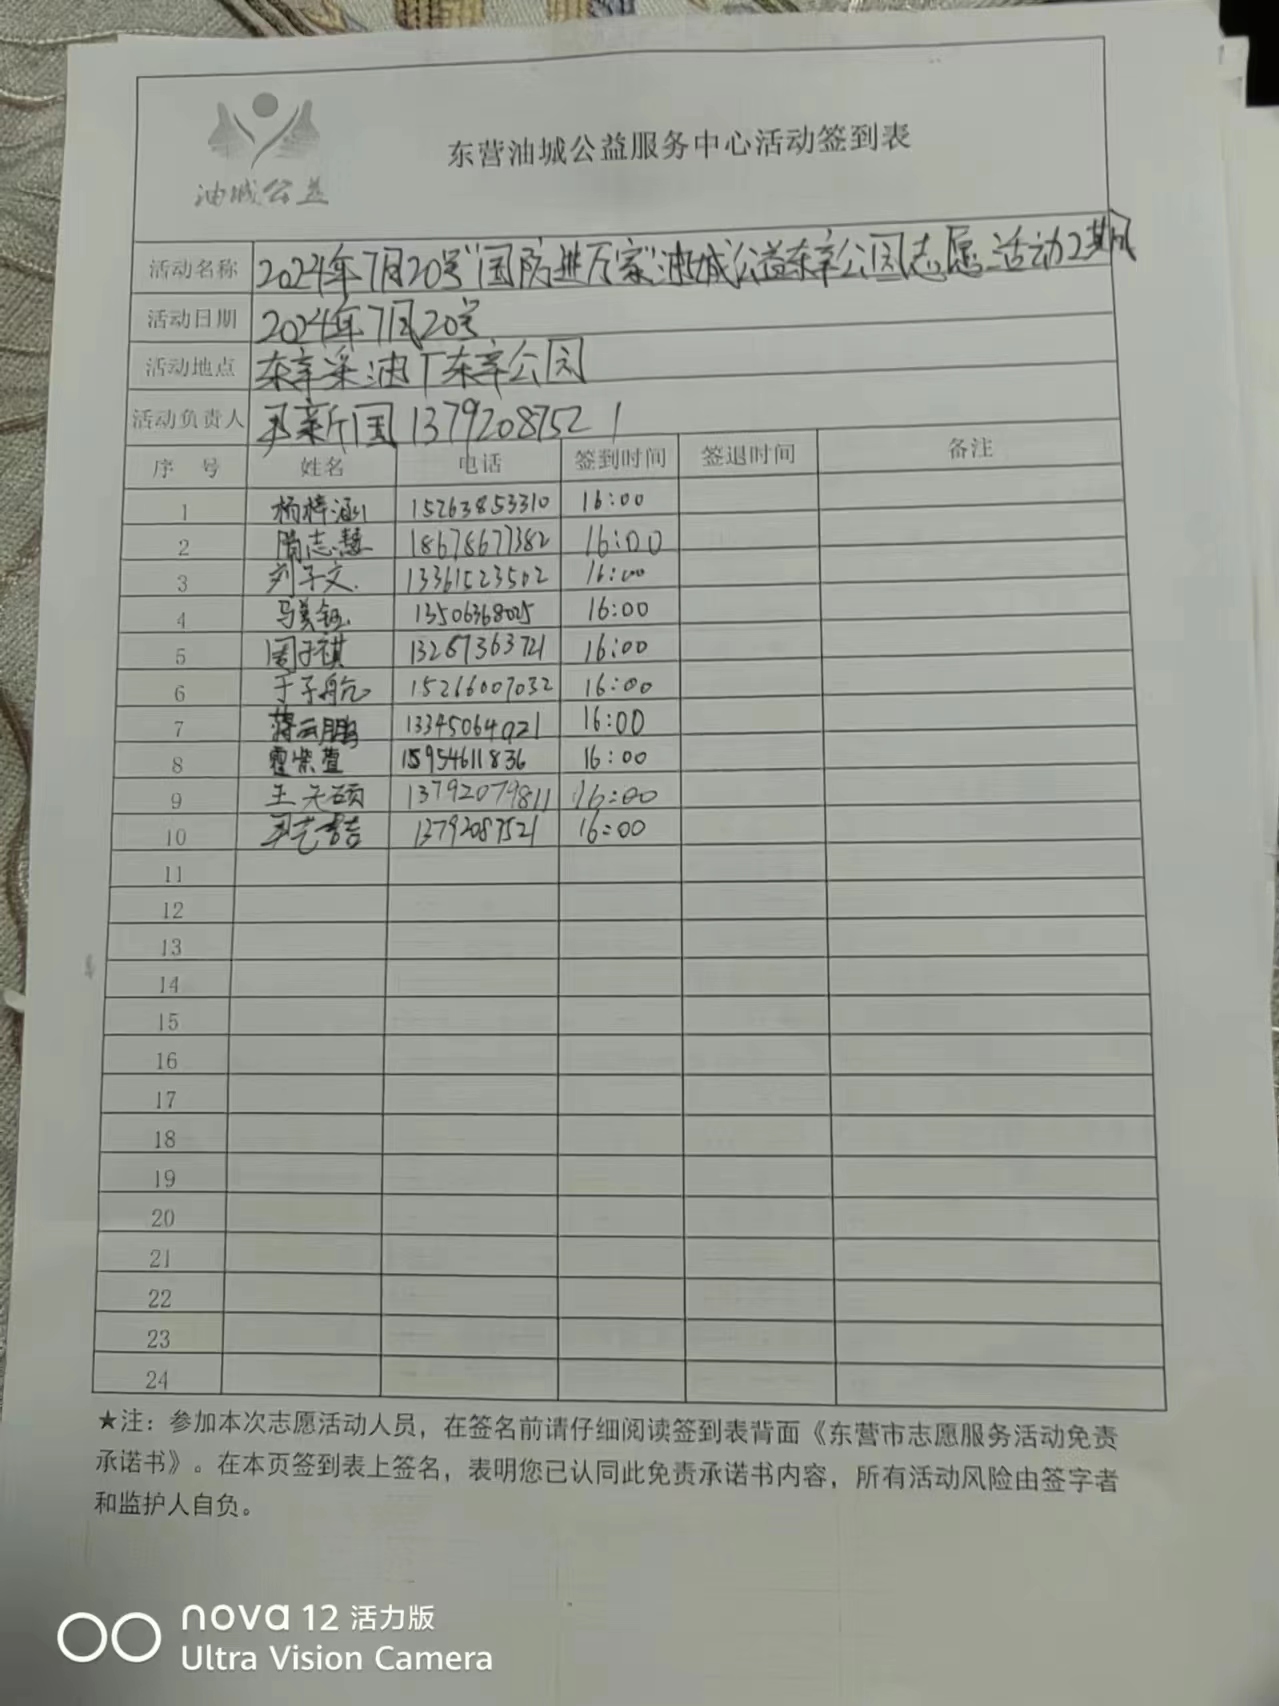 油城公益
东营油城公益服务中心活动签到表
活动名称 2024年7月20号"国防进万家"油城公益东辛公园志愿活动2期
活动日期 2024年7月20号
活动地点 东辛采油厂东辛公园
活动负责人 新国 13792087521
序 号 姓名 电话 签到时间 签退时间 备注
1 杨梓涵 15263853310 16:00
2 志慧 18678677382 16:00
3 刘子文 13361523502 16:00
4 马美钰 13506368025 16:00
5 周子祺 13287363721 16:00
6 于子航 15266007032 16:00
7 蒋云鹏 13345064921 16:00
8 霍紫萱 15954611836 16:00
9 王天硕 13792079811 16:00
10 13792087521 16:00
11
12
13
14
15
16
17
18
19
20
21
22
23
24
★注：参加本次志愿活动人员，在签名前请仔细阅读签到表背面《东营市志愿服务活动免责
承诺书》。在本页签到表上签名，表明您已认同此免责承诺书内容，所有活动风险由签字者
和监护人自负。
nova 12 活力版
Ultra Vision Camera